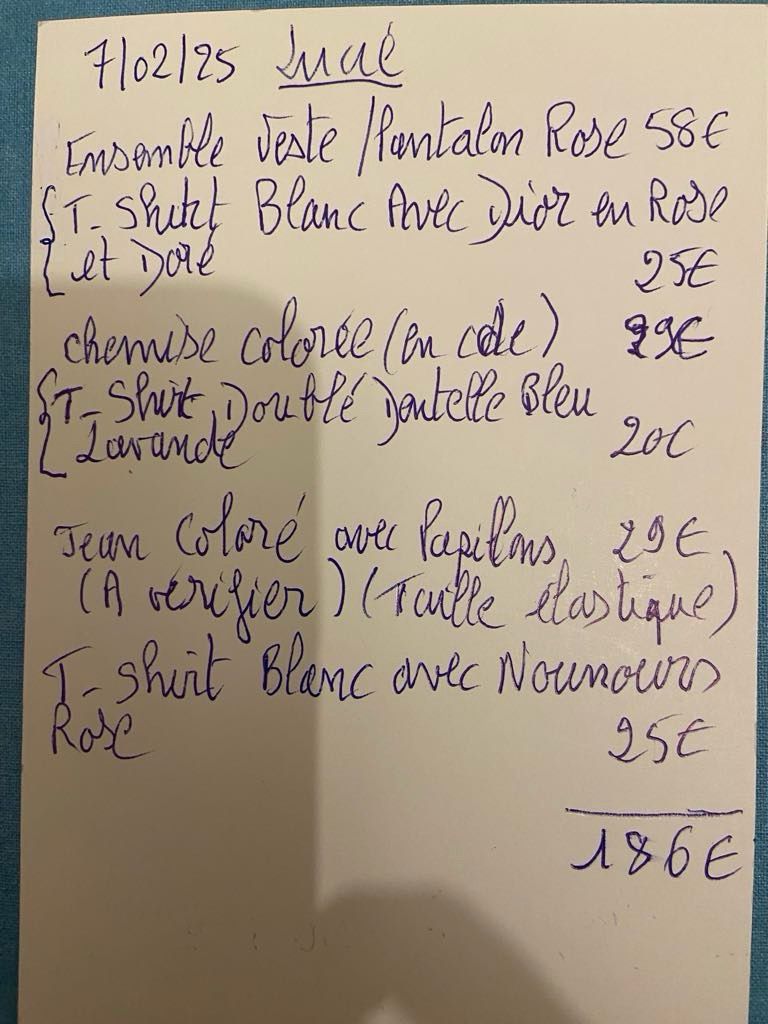 7/02/25
Ensemble Veste / Pantalon Rose 58€
T-Shirt Blanc Avec Dior en Rose
et Doré 25€
chemise colorée (en cde) 29€
T-Shirt Doublé Dentelle Bleu
Lavande 20€
Jean Coloré avec Papillons 29€
(A vérifier) (Taille élastique)
T-Shirt Blanc avec Nounours
Rose 25€
186€